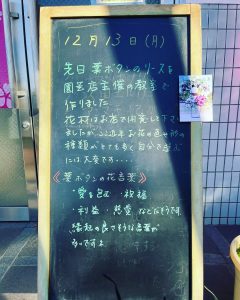 12月13日(月)
先日葉ボタンのリースを
園芸店主催の教室で
作りました
花材はお店で用意して下さい
ましたが、ここ近年お花の色や形の
種類がとても多く自分で選ぶ
には大変です....
《葉ボタンの花言葉》
・愛を包む ・祝福
・利益 ・慈愛 などだそうです
縁起の良さそうな言葉が
多いですよ